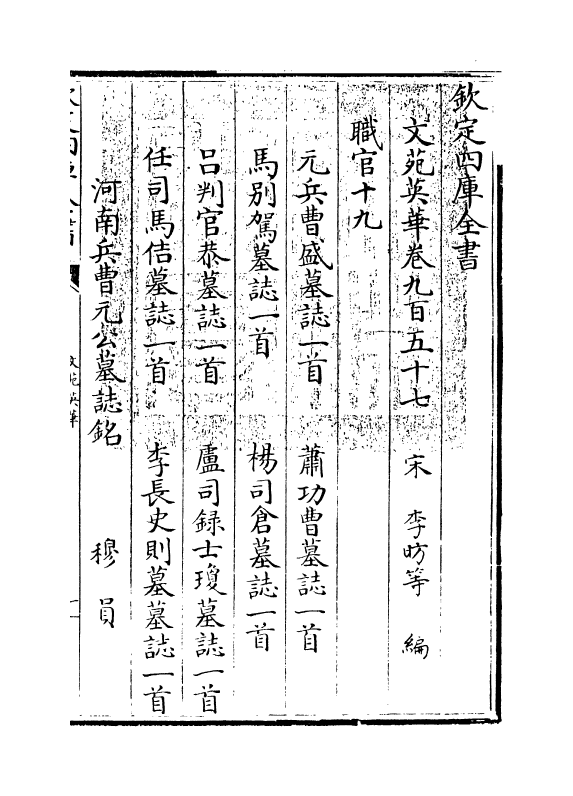 欽定四庫全書
文苑英華卷九百五十七 宋 李昉等 編
職官十九
元兵曹盛墓誌一首 蕭功曹墓誌一首
馬別駕墓誌一首 楊司倉墓誌一首
呂判官恭墓誌一首 盧司録士瓊墓誌一首
任司馬佶墓誌一首 李長史則墓墓誌一首
河南兵曹元公墓誌銘 穆員
文苑英華
一